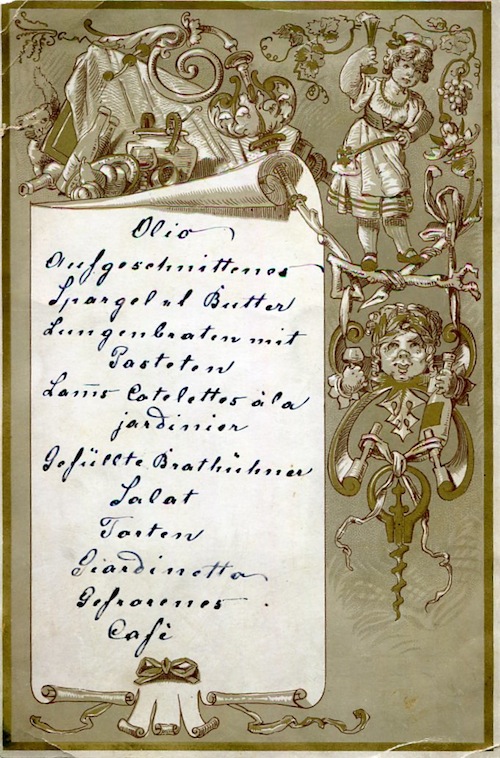 Olio
Aufgeschnittenes
Spargel Butter
Lungenbraten mit
Pasteten
Lam̅s Cotelettes à la
jardinier
Gefüllte Brathühner
Salat
Torten
Giardinetto
Gefrorenes .
Cafè